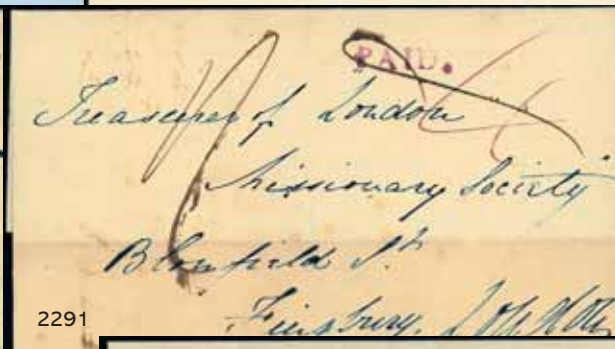 PAID.
Treasurer of London
Missionary Society
Blomfield St.
Finsbury, London
2291